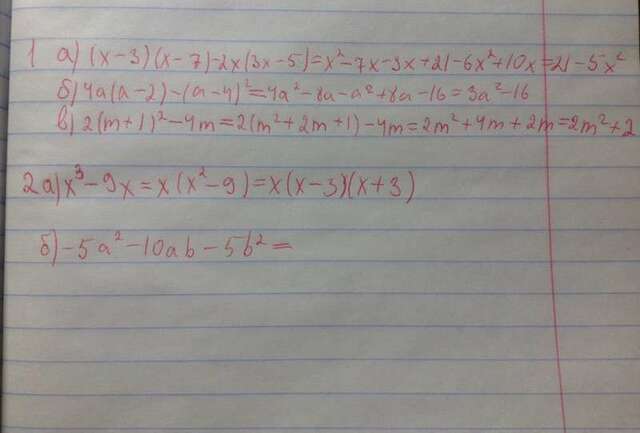 1 а) (x-3)(x-7)-2x(3x-5)=x²-7x-3x+21-6x²+10x=21-5x²
б) 4a(a-2)-(a-4)²=4a²-8a-a²+8a-16=3a²-16
в) 2(m+1)²-4m=2(m²+2m+1)-4m=2m²+4m+2m=2m²+2
2 а) x³-9x=x(x²-9)=x(x-3)(x+3)
б) -5a²-10ab-5b²=